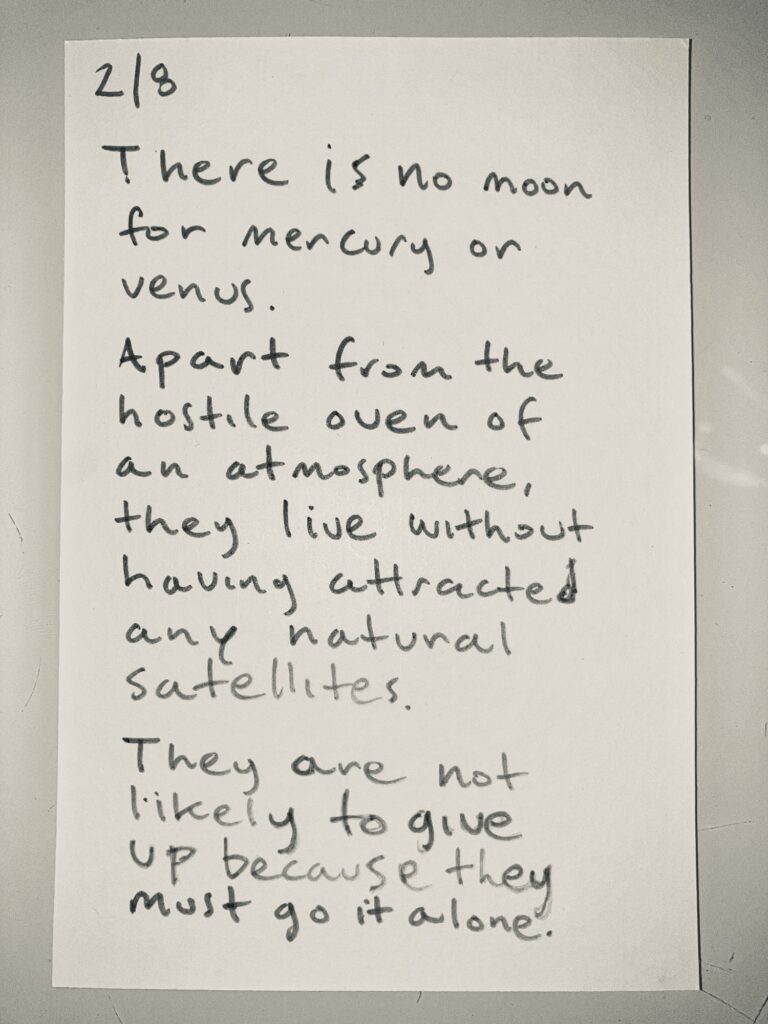 2/8
There is no moon
for mercury or
venus.
Apart from the
hostile oven of
an atmosphere,
they live without
having attracted
any natural
satellites.
They are not
likely to give
up because they
must go it alone.